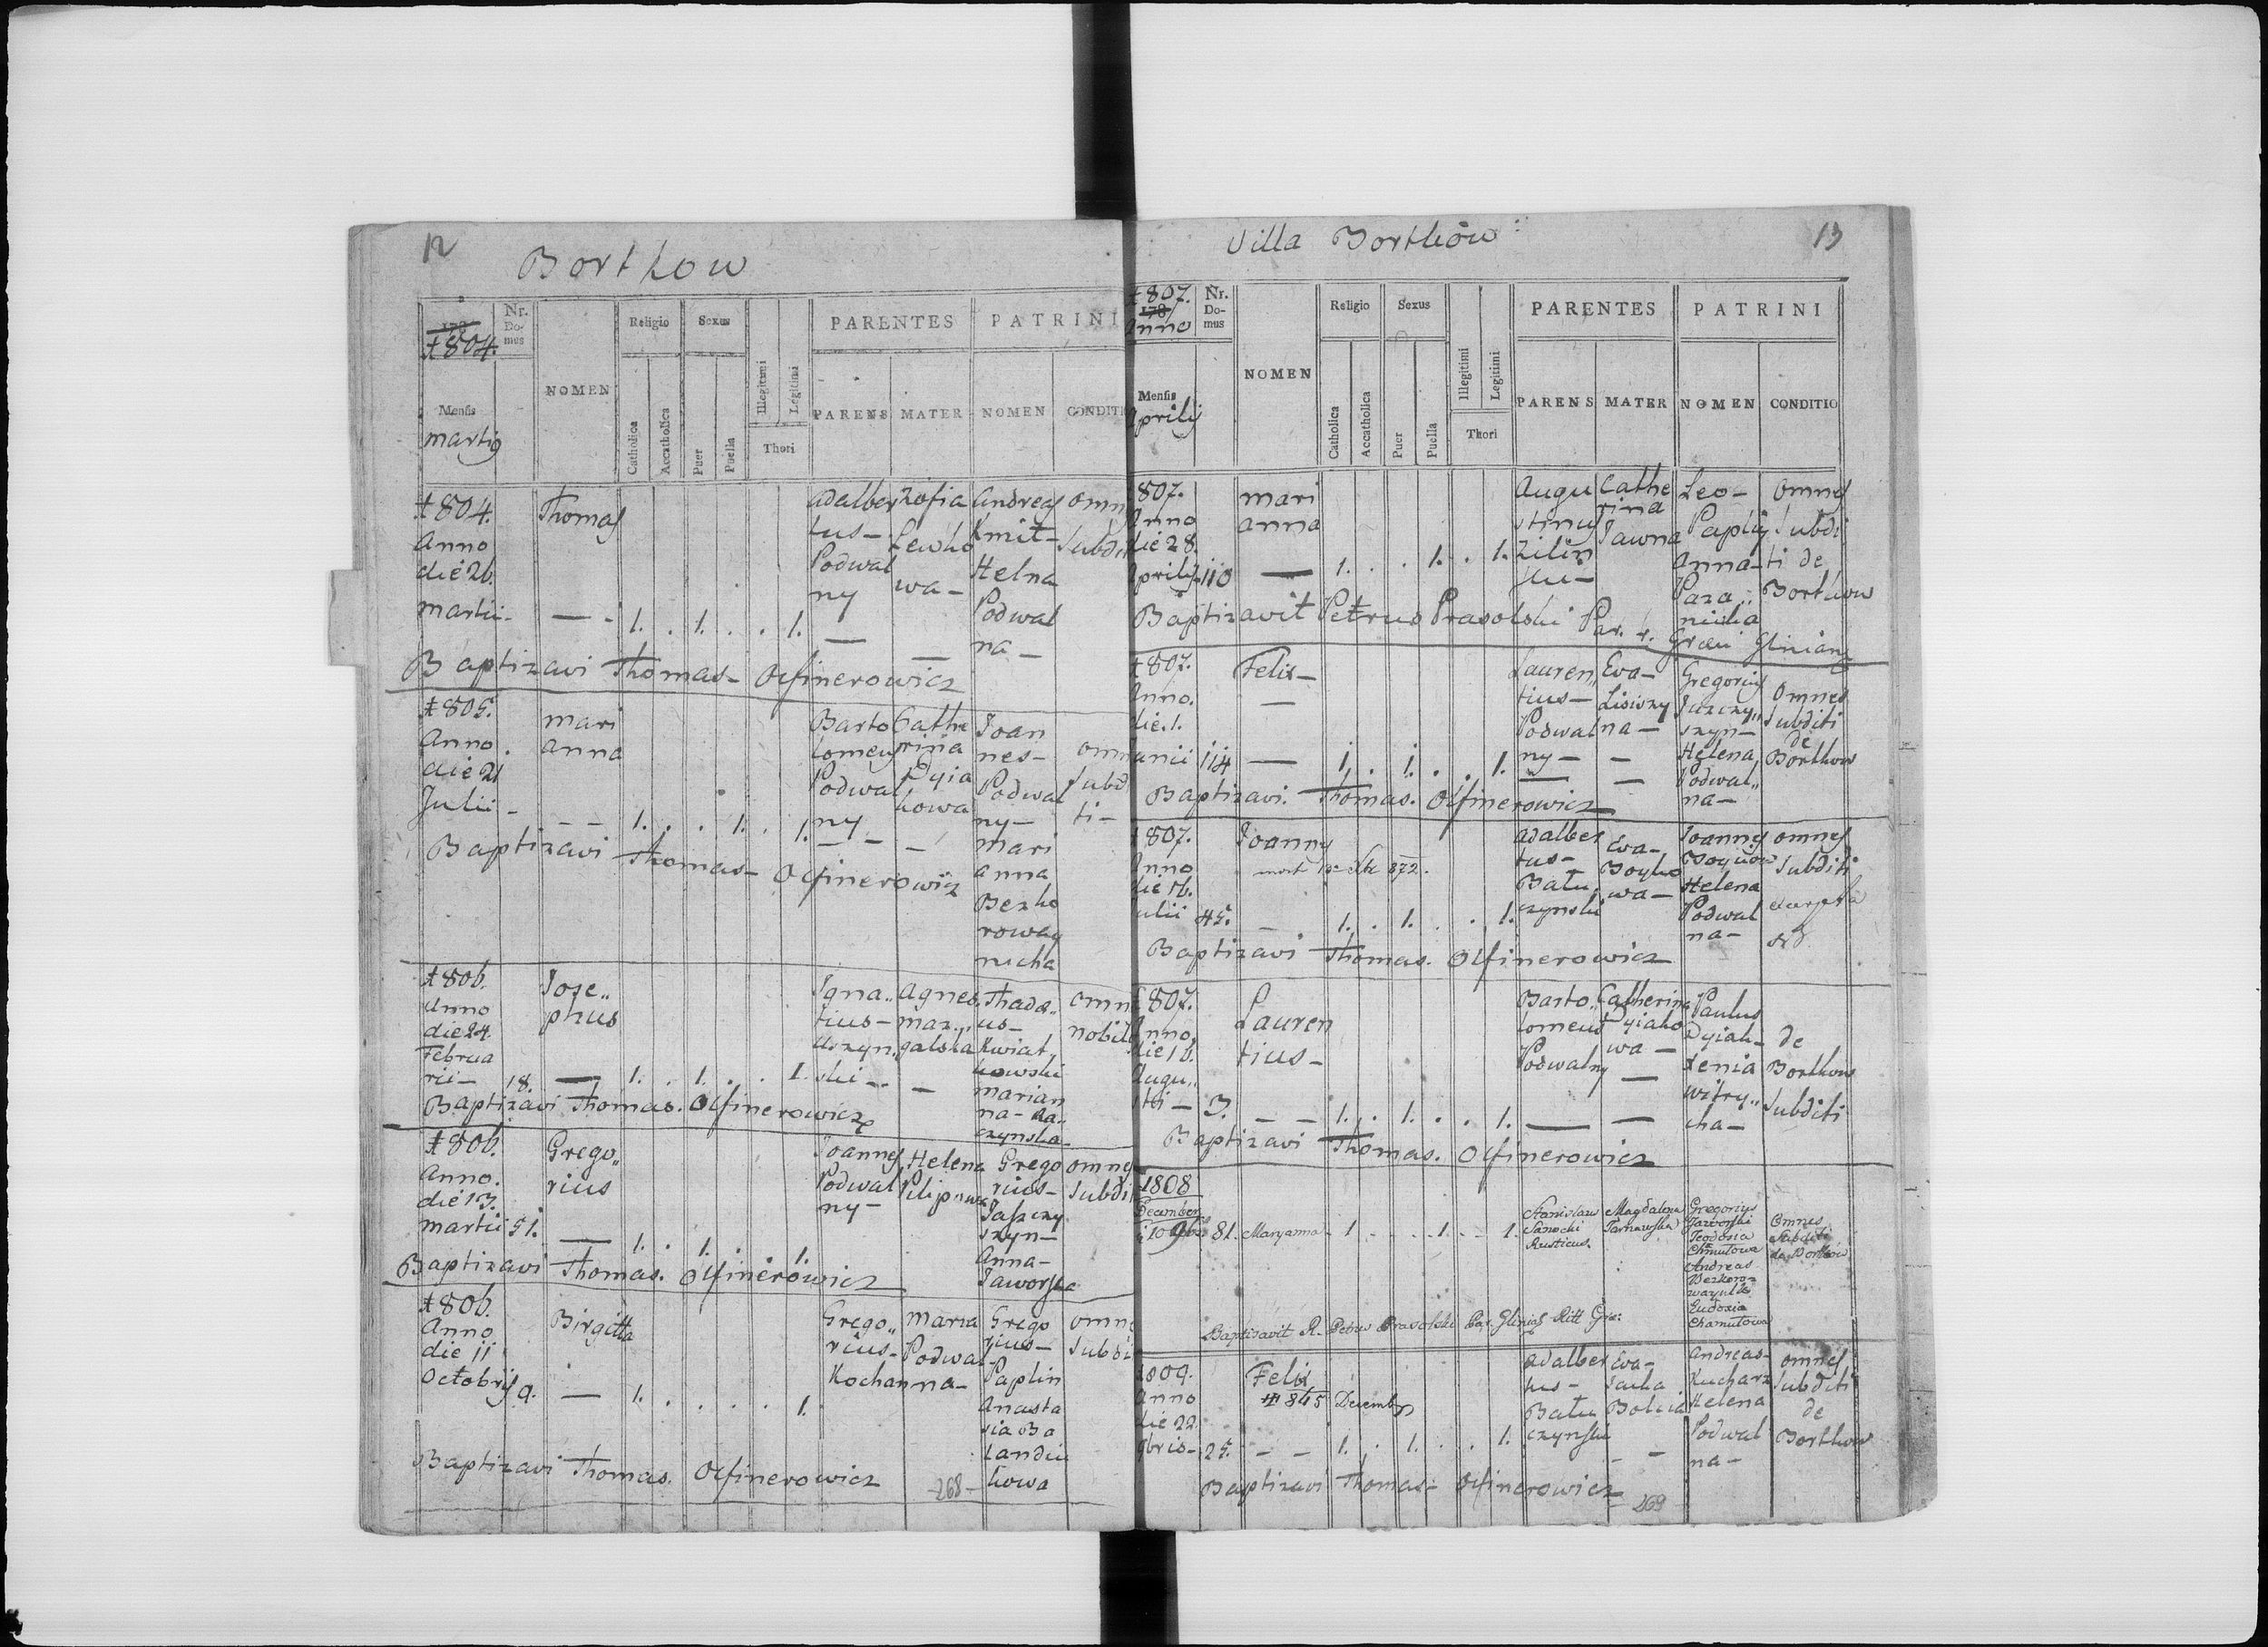 12
Borthow
178
1804.
Nr.
Do-
mus
NOMEN
Religio
Sexus
Catholica
Accatholica
Puer
Puella
Illegitimi
Legitimi
Thori
PARENTES
PATRINI
PARENS
MATER
NOMEN
CONDITI
Mensis
martij
1804.
Anno
die 26.
martii-
Thomas
1. . 1. . . 1.
adalber
tus-
Podwal
ny
Zofia
Lewko
wa-
Andreas
Kmit-
Helna
Podwal
na-
omn
Subdi
Baptizavi Thomas- Olfinerowicz
1805.
Anno.
die 21
Julii-
mari
anna
1. . . 1. . 1.
Barto
lomeus
Podwal
ny
Cathe
rina
Dyia
kowa
Joan
nes-
Podwal
ny-
mari
anna
Bezko
roway
nicha
omn
Subd
ti-
Baptizavi Thomas- Olfinerowicz
1806.
Anno
die 24.
Februa
rii-
18.
Jose„
phus
1. . 1. . . 1.
Igna„
tius-
Uszyn„
ski-
Agnes
maz„
galska
Thada„
us-
Kwiat
kowski
marian
na-
czynska-
omn
nobil
Baptizavi Thomas. Olfinerowicz
1806.
Anno.
die 13.
martii
51.
Grego„
rius
1. . 1. . . 1.
Joannes
Podwal
ny-
Helena
Pilipowa
Grego
rius-
Jaszczy
szyn-
Anna-
Jaworska
omnes
Subdi
Baptizavi Thomas. Olfinerowicz
1806.
Anno
die 11
Octobris
9.
Birgitta
1. . . . . 1.
Grego„
rius-
Kochan
maria
Podwal
na-
Grego
rius-
Paplin
Anasta
sia Ba
landiu
kowa
omne
Subdi
Baptizavi Thomas. Olfinerowicz
-268-
Villa Borthow:
13
1807.
178
Anno
Nr.
Do-
mus
NOMEN
Religio
Sexus
Catholica
Accatholica
Puer
Puella
Illegitimi
Legitimi
Thori
PARENTES
PATRINI
PARENS
MATER
NOMEN
CONDITIO
Mensis
Aprilij
807.
Anno
die 28.
Aprilis
110
mari
anna
1. . . 1. . 1.
Augu
stinus
Zilin
ski-
Cathe
rina
Jawna
Leo-
Paplij
Anna-
Para„
nicha
omnes
Subdi
ti de
Borthow
Baptizavit Petrus Prasolski Par. r. Graeci Gliniany
1807.
Anno.
die 1.
unii
114
Felix-
1. . 1. . . 1.
Lauren„
tius-
Podwal
ny-
Eva-
Lisiczy
na-
Gregorius
Juzczy„
szyn-
Helena
Podwal„
na-
Omnes
Subditi
de
Borthow
Baptizavi. Thomas. Olfinerowicz
1807.
Anno
die 16.
Julii
45.
Joannes
1. . 1. . . 1.
adalber
tus-
Batu
czynski
Eva-
Boyko
wa-
Joannes
Helena
Podwal
na-
omnes
Subditi
Baptizavi Thomas. Olfinerowicz
1807.
Anno,
die 16.
Augu„
sti-
3.
Lauren
tius-
1. . 1. . . 1.
Barto„
lomeus
Podwalny
Catherina
Dyiako
wa-
Paulus
Dyiak-
Xenia
Witry„
cha-
de
Borthow
Subditi
Baptizavi Thomas. Olfinerowicz
1808
December
81.
Maryanna
1 . . . 1. . 1.
Stanislaw
Sanocki
Rusticus.
Magdalena
Tarnawska
Gregorius
Jaworski
Teodosia
Chmutowa
Andreas
Bezkoro-
waynik
Eudoxia
Chamutowa
Omnes
Subditi
de Borthow
Baptisavit R. Petrus Prasolski Par. Glinias Ritt Gre:
1809.
Anno
die 22.
9bris-
25.
Felix
✝ 845 Decembr
1. . 1. . . 1.
adalber
tus-
Batu
czynski
Eva-
Andreas-
Kucharz
Helena
Podwal
na-
omnes
Subditi
de
Borthow
Baptizavi Thomas- Olfinerowicz
269